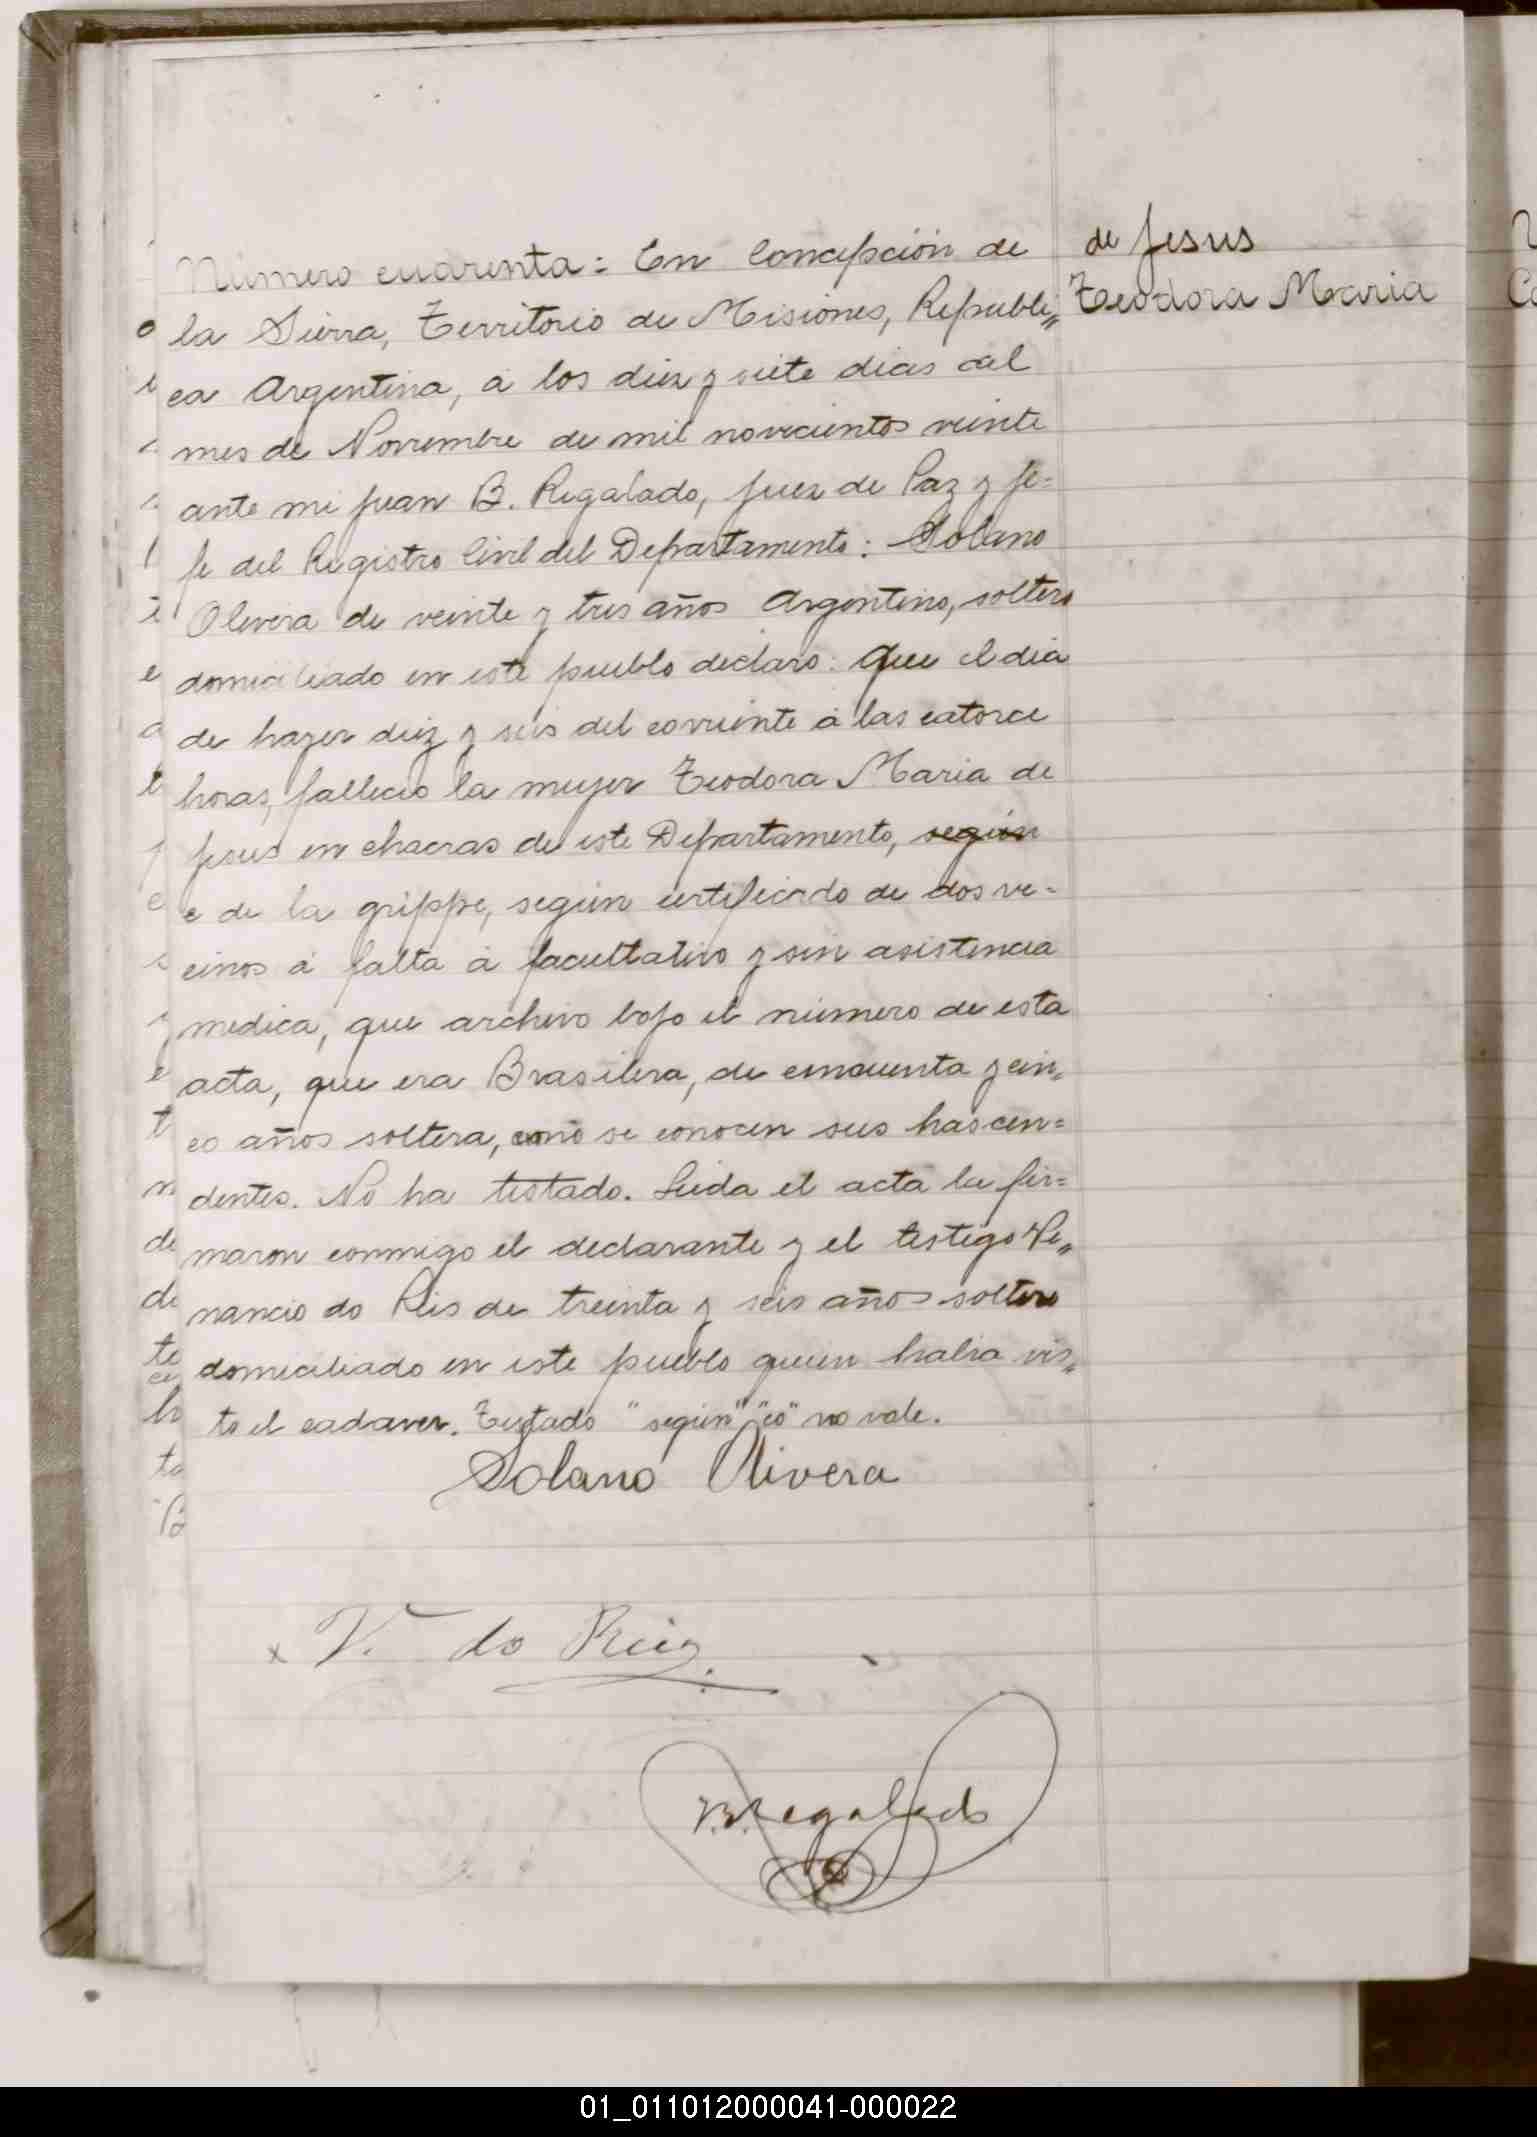 Número cuarenta: En Concepción de
la Sierra, Territorio de Misiones, Republi„
ca Argentina, á los diez y siete dias del
mes de Noviembre de mil novecientos veinte
ante mi Juan B. Regalado, Juez de Paz y Je=
fe del Registro Civil del Departamento: Solano
Olivera de veinte y tres años Argentino, soltero
domiciliado en este pueblo declaro: Que el dia
de hayer diez y seis del corriente á las catorce
horas, fallecio la mujer Teodora Maria de
Jesus en chacras de este Departamento, según
e de la grippe, según certificado de dos ve=
cinos á falta á facultativo y sin asistencia
medica, que archivo bajo el número de esta
acta, que era Brasilera, de cincuenta y cin„
co años soltera, co no se conocen sus hascen=
dentes. No ha testado. Leida el acta la fir=
maron conmigo el declarante y el testigo Ve„
nancio do Reis de treinta y seis años soltero
domiciliado en este pueblo quien habia vis„
to el cadaver. Testado "según" "co" no vale.
Solano Olivera
x V. do Reis
B. Regalado
de Jesus
Teodora Maria
01_011012000041-000022